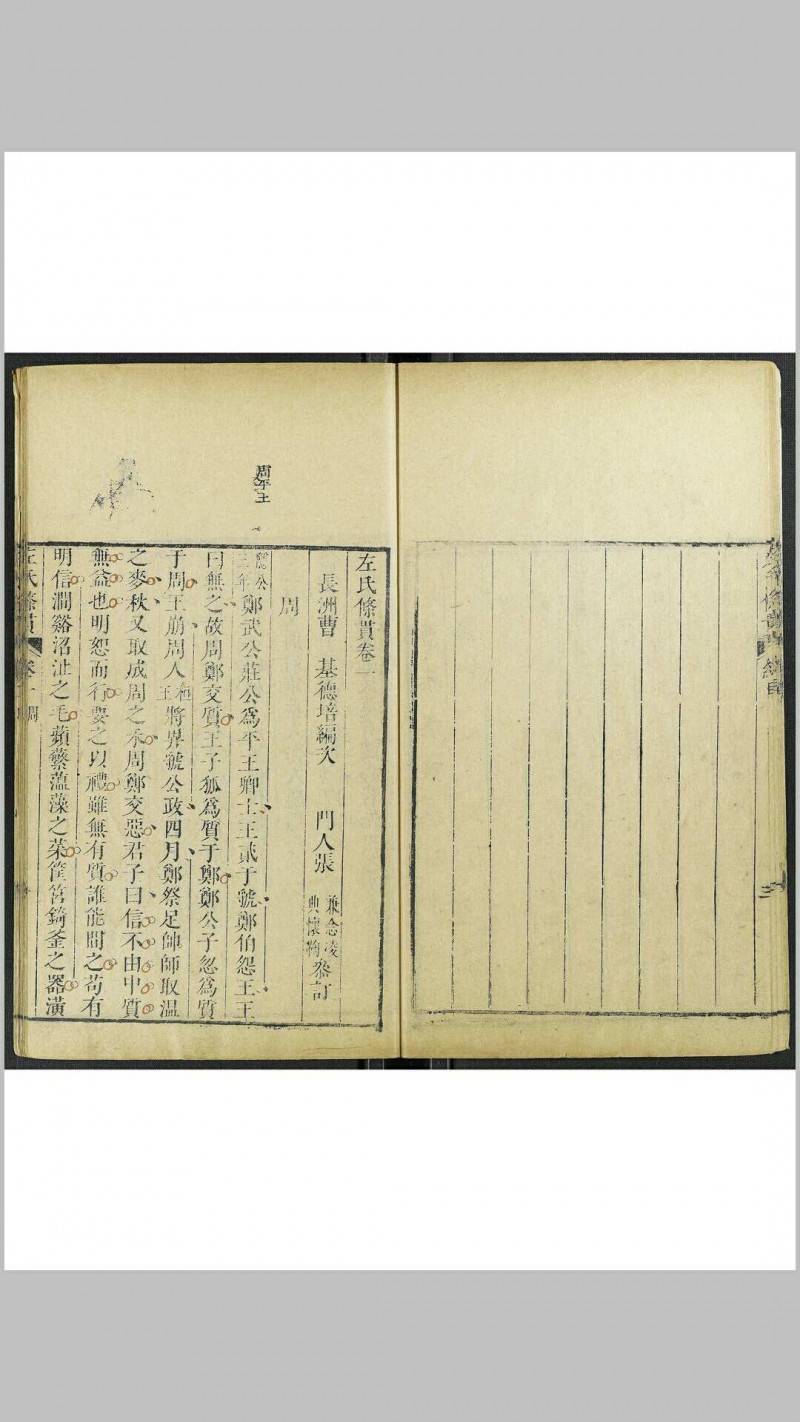 左氏條貫卷一
長洲曹 基德培編次 門人張 兼念凌 典懷 叅訂
周
周平王
隱公三年鄭武公莊公爲平王卿士王貳于虢鄭伯怨王王
曰無之故周鄭交質王子狐爲質于鄭鄭公子忽爲質
于周王崩周人將畀虢公政四月鄭祭足帥師取温
之麥秋又取成周之禾周鄭交惡君子曰信不由中質
無益也明恕而行要之以禮雖無有質誰能間之苟有
明信澗谿沼沚之毛蘋蘩薀藻之菜筐筥錡釜之器潢
左氏條貫 卷一 周